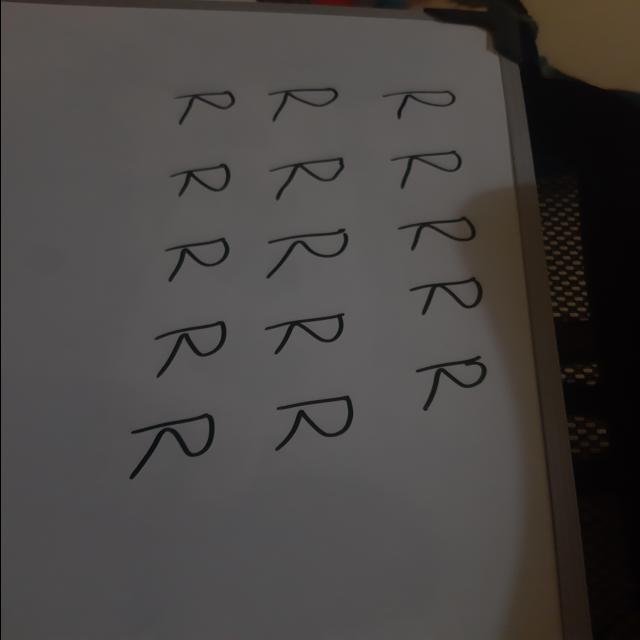 R R R R R
R R R R R
R R R R R